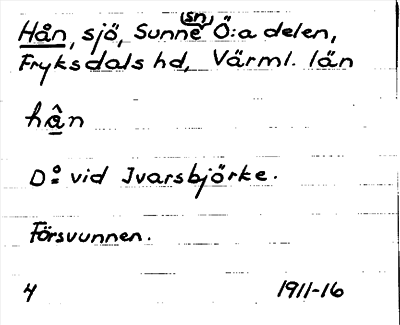 Hån, sjö, Sunne sn Ö:a delen,
Fryksdals hd, Värml. län
hân
Do vid Ivarsbjörke.
Försvunnen.
4 1911-16